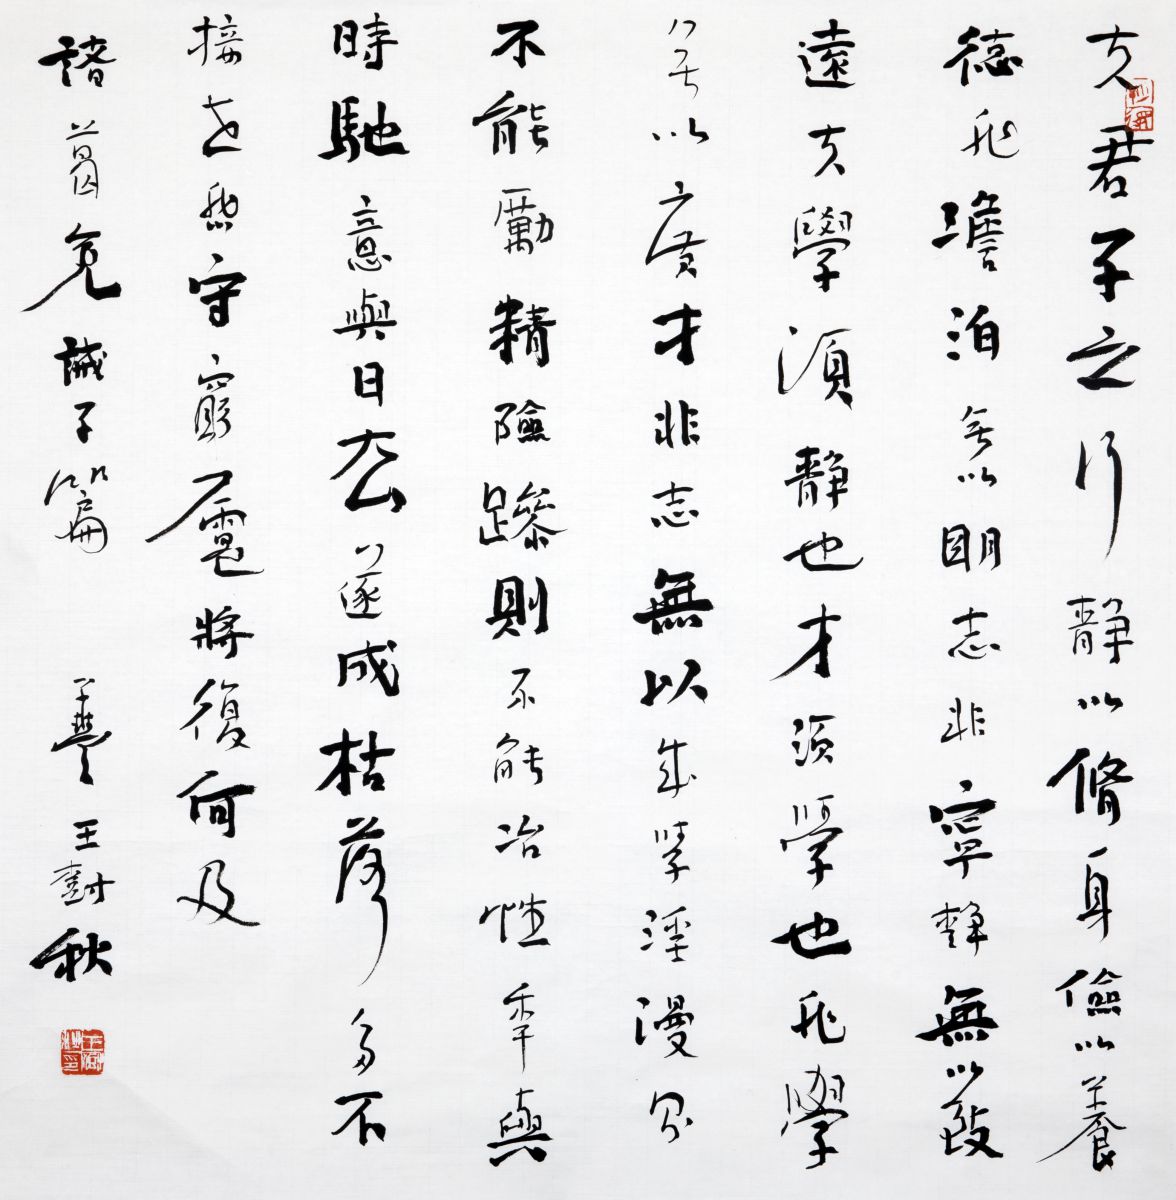 夫君子之行静以脩身儉以養
德非澹泊無以眀志非寧静無以致
遠夫學須静也才須學也非學
無以廣才非志無以成學淫漫則
不能勵精險躁則不能冶性年與
時馳意與日去遂成枯落多不
接世悲守窮廬將復何及
諸葛亮誡子篇 王樹秋